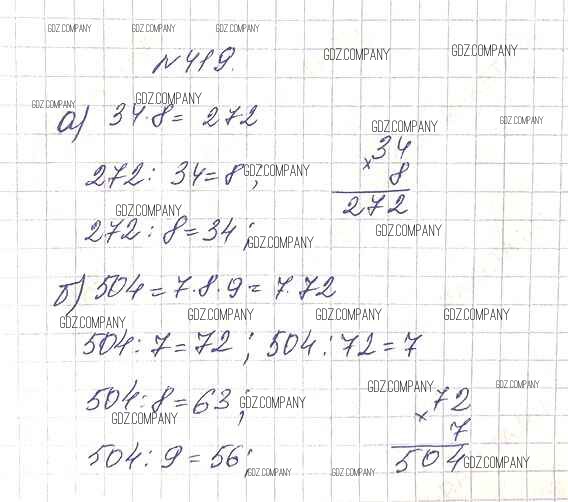 GDZ.COMPANY GDZ.COMPANY GDZ.COMPANY
№419. GDZ.COMPANY GDZ.COMPANY
GDZ.COMPANY GDZ.COMPANY
а) 34·8= 272 GDZ.COMPANY GDZ.COMPANY
34
272: 34=8; GDZ.COMPANY × 8
GDZ.COMPANY 272
272:8=34; GDZ.COMPANY GDZ.COMPANY
б) 504=7·8·9=7·72
GDZ.COMPANY GDZ.COMPANY GDZ.COMPANY GDZ.COMPANY
504:7=72; 504:72=7
GDZ.COMPANY GDZ.COMPANY
504:8=63; GDZ.COMPANY × 72
GDZ.COMPANY 7
504:9=56; 504 GDZ.COMPANY
GDZ.COMPANY GDZ.COMPANY